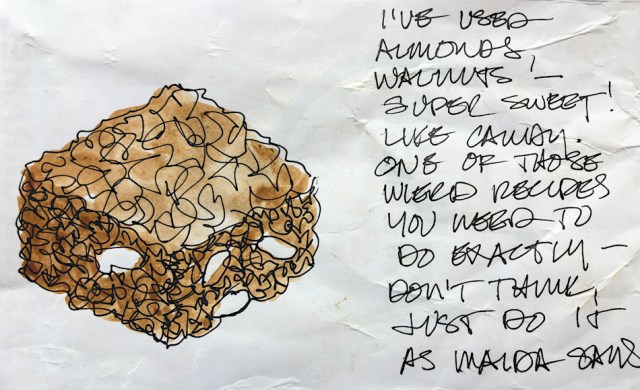 I'VE USED
ALMONDS,
WALNUTS! —
SUPER SWEET!
LIKE CANDY.
ONE OF THOSE
WIERD RECIPES
YOU NEED TO
DO EXACTLY —
DON'T THINK!
JUST DO IT
AS MALDA SAYS